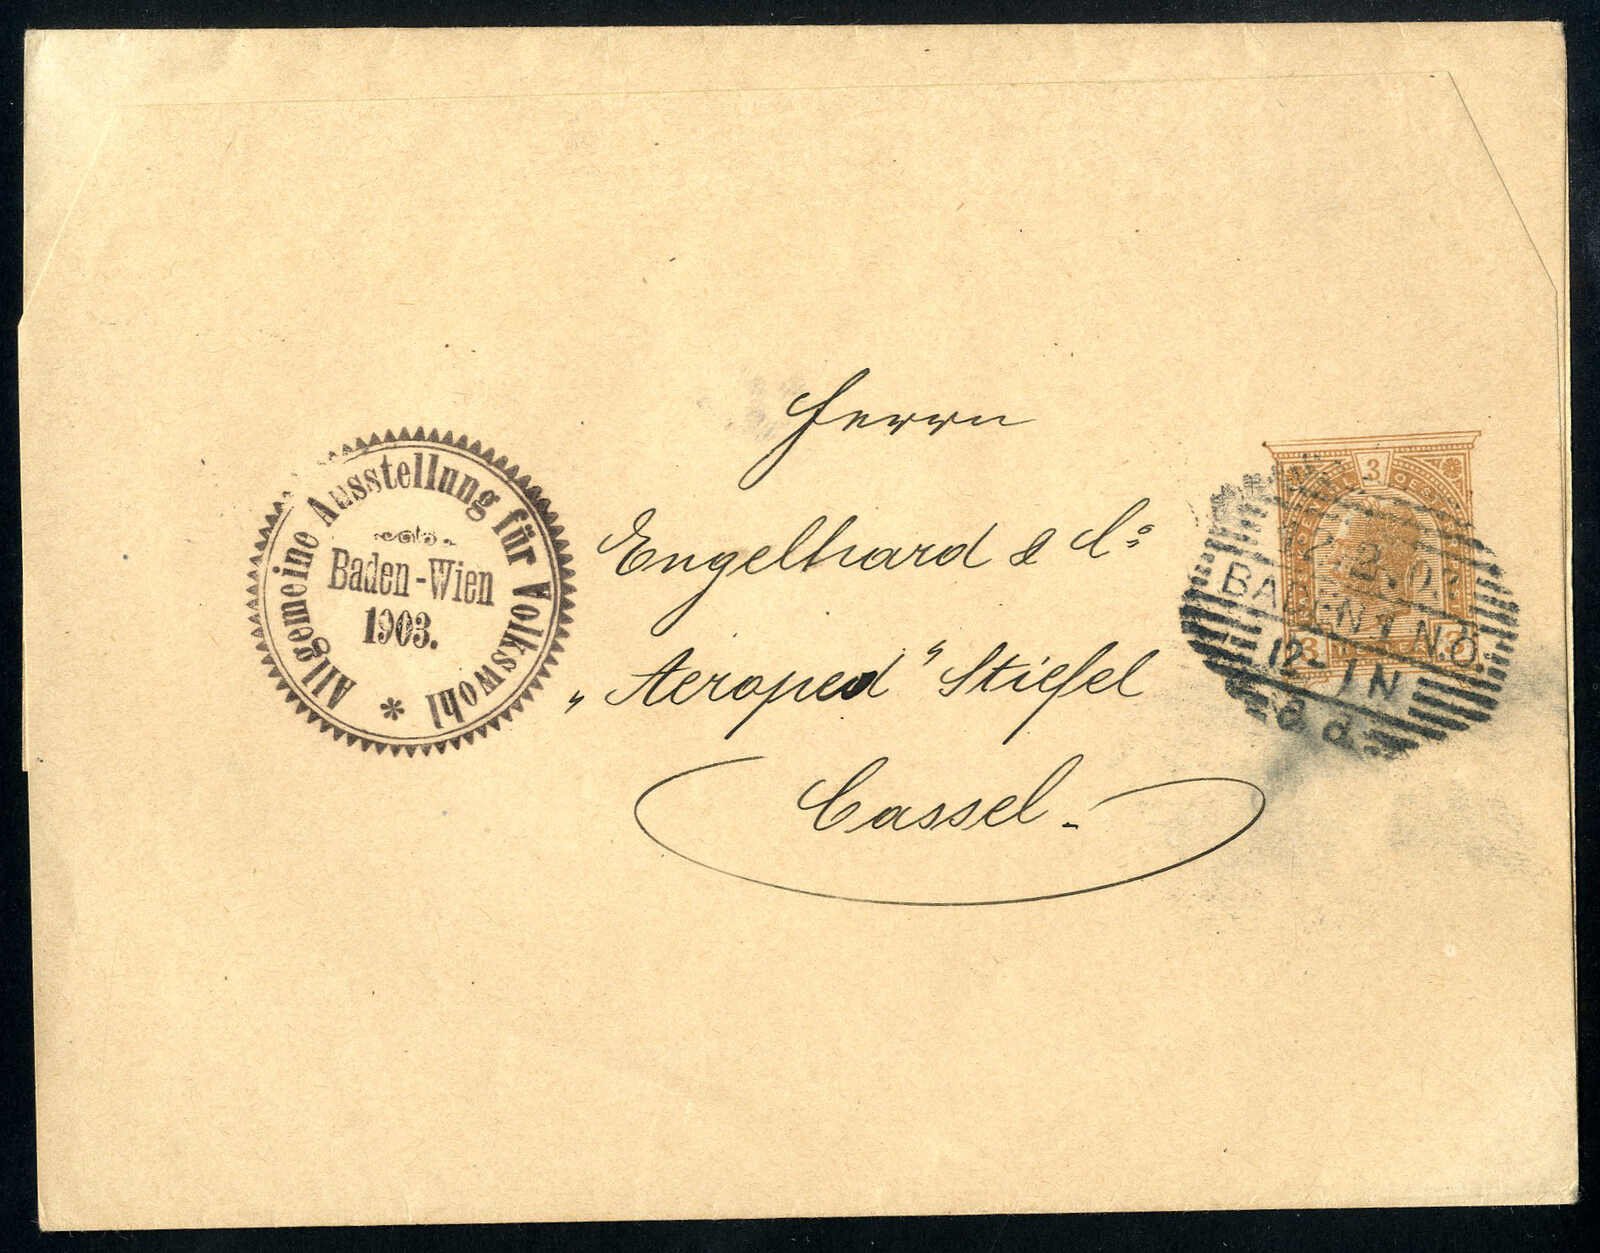 Allgemeine Ausstellung für Volkswohl *
Baden-Wien
1903.
Herrn
Engelhard & Co
„Aeroped" Stiefel
Cassel.
3
BADEN 1 N.Ö.
12-1N
3 3
* 8 d *